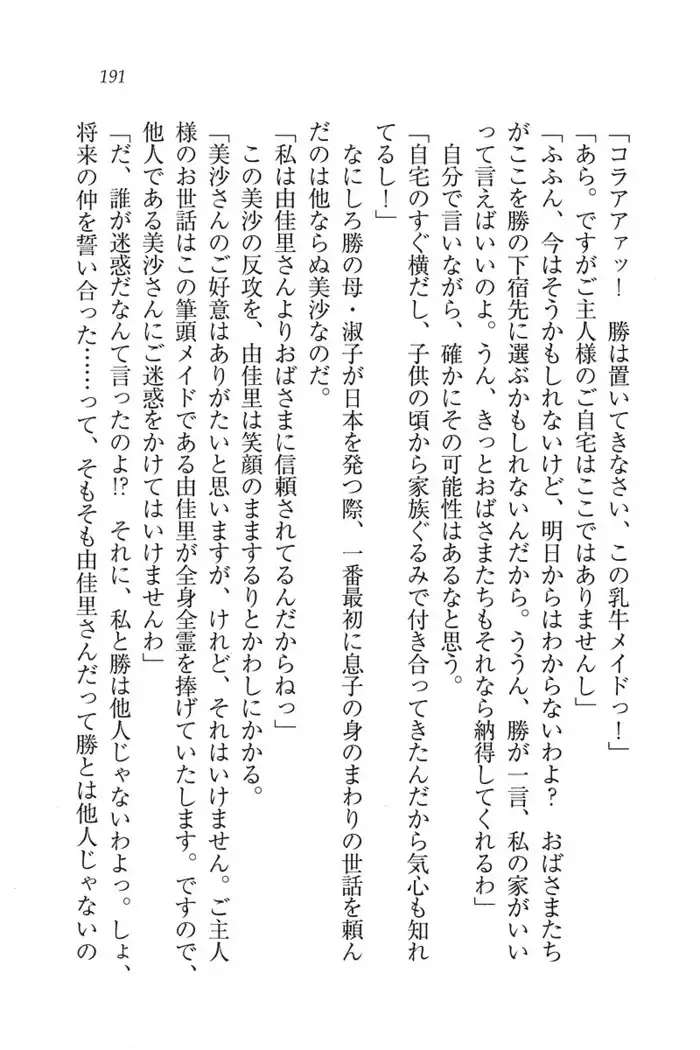 191
「コラアアァッ！　勝は置いてきなさい、この乳牛メイドっ！」
「あら。ですがご主人様のご自宅はここではありませんし」
「ふふん、今はそうかもしれないけど、明日からはわからないわよ？　おばさまたち
がここを勝の下宿先に選ぶかもしれないんだから。ううん、勝が一言、私の家がいい
って言えばいいのよ。うん、きっとおばさまたちもそれなら納得してくれるわ」
自分で言いながら、確かにその可能性はあるなと思う。
「自宅のすぐ横だし、子供の頃から家族ぐるみで付き合ってきたんだから気心も知れ
てるし！」
なにしろ勝の母・淑子が日本を発つ際、一番最初に息子の身のまわりの世話を頼ん
だのは他ならぬ美沙なのだ。
「私は由佳里さんよりおばさまに信頼されてるんだからねっ」
この美沙の反攻を、由佳里は笑顔のままするりとかわしにかかる。
「美沙さんのご好意はありがたいと思いますが、けれど、それはいけません。ご主人
様のお世話はこの筆頭メイドである由佳里が全身全霊を捧げていたします。ですので、
他人である美沙さんにご迷惑をかけてはいけませんわ」
「だ、誰が迷惑だなんて言ったのよ!?　それに、私と勝は他人じゃないわよっ。しょ、
将来の仲を誓い合った……って、そもそも由佳里さんだって勝とは他人じゃないの